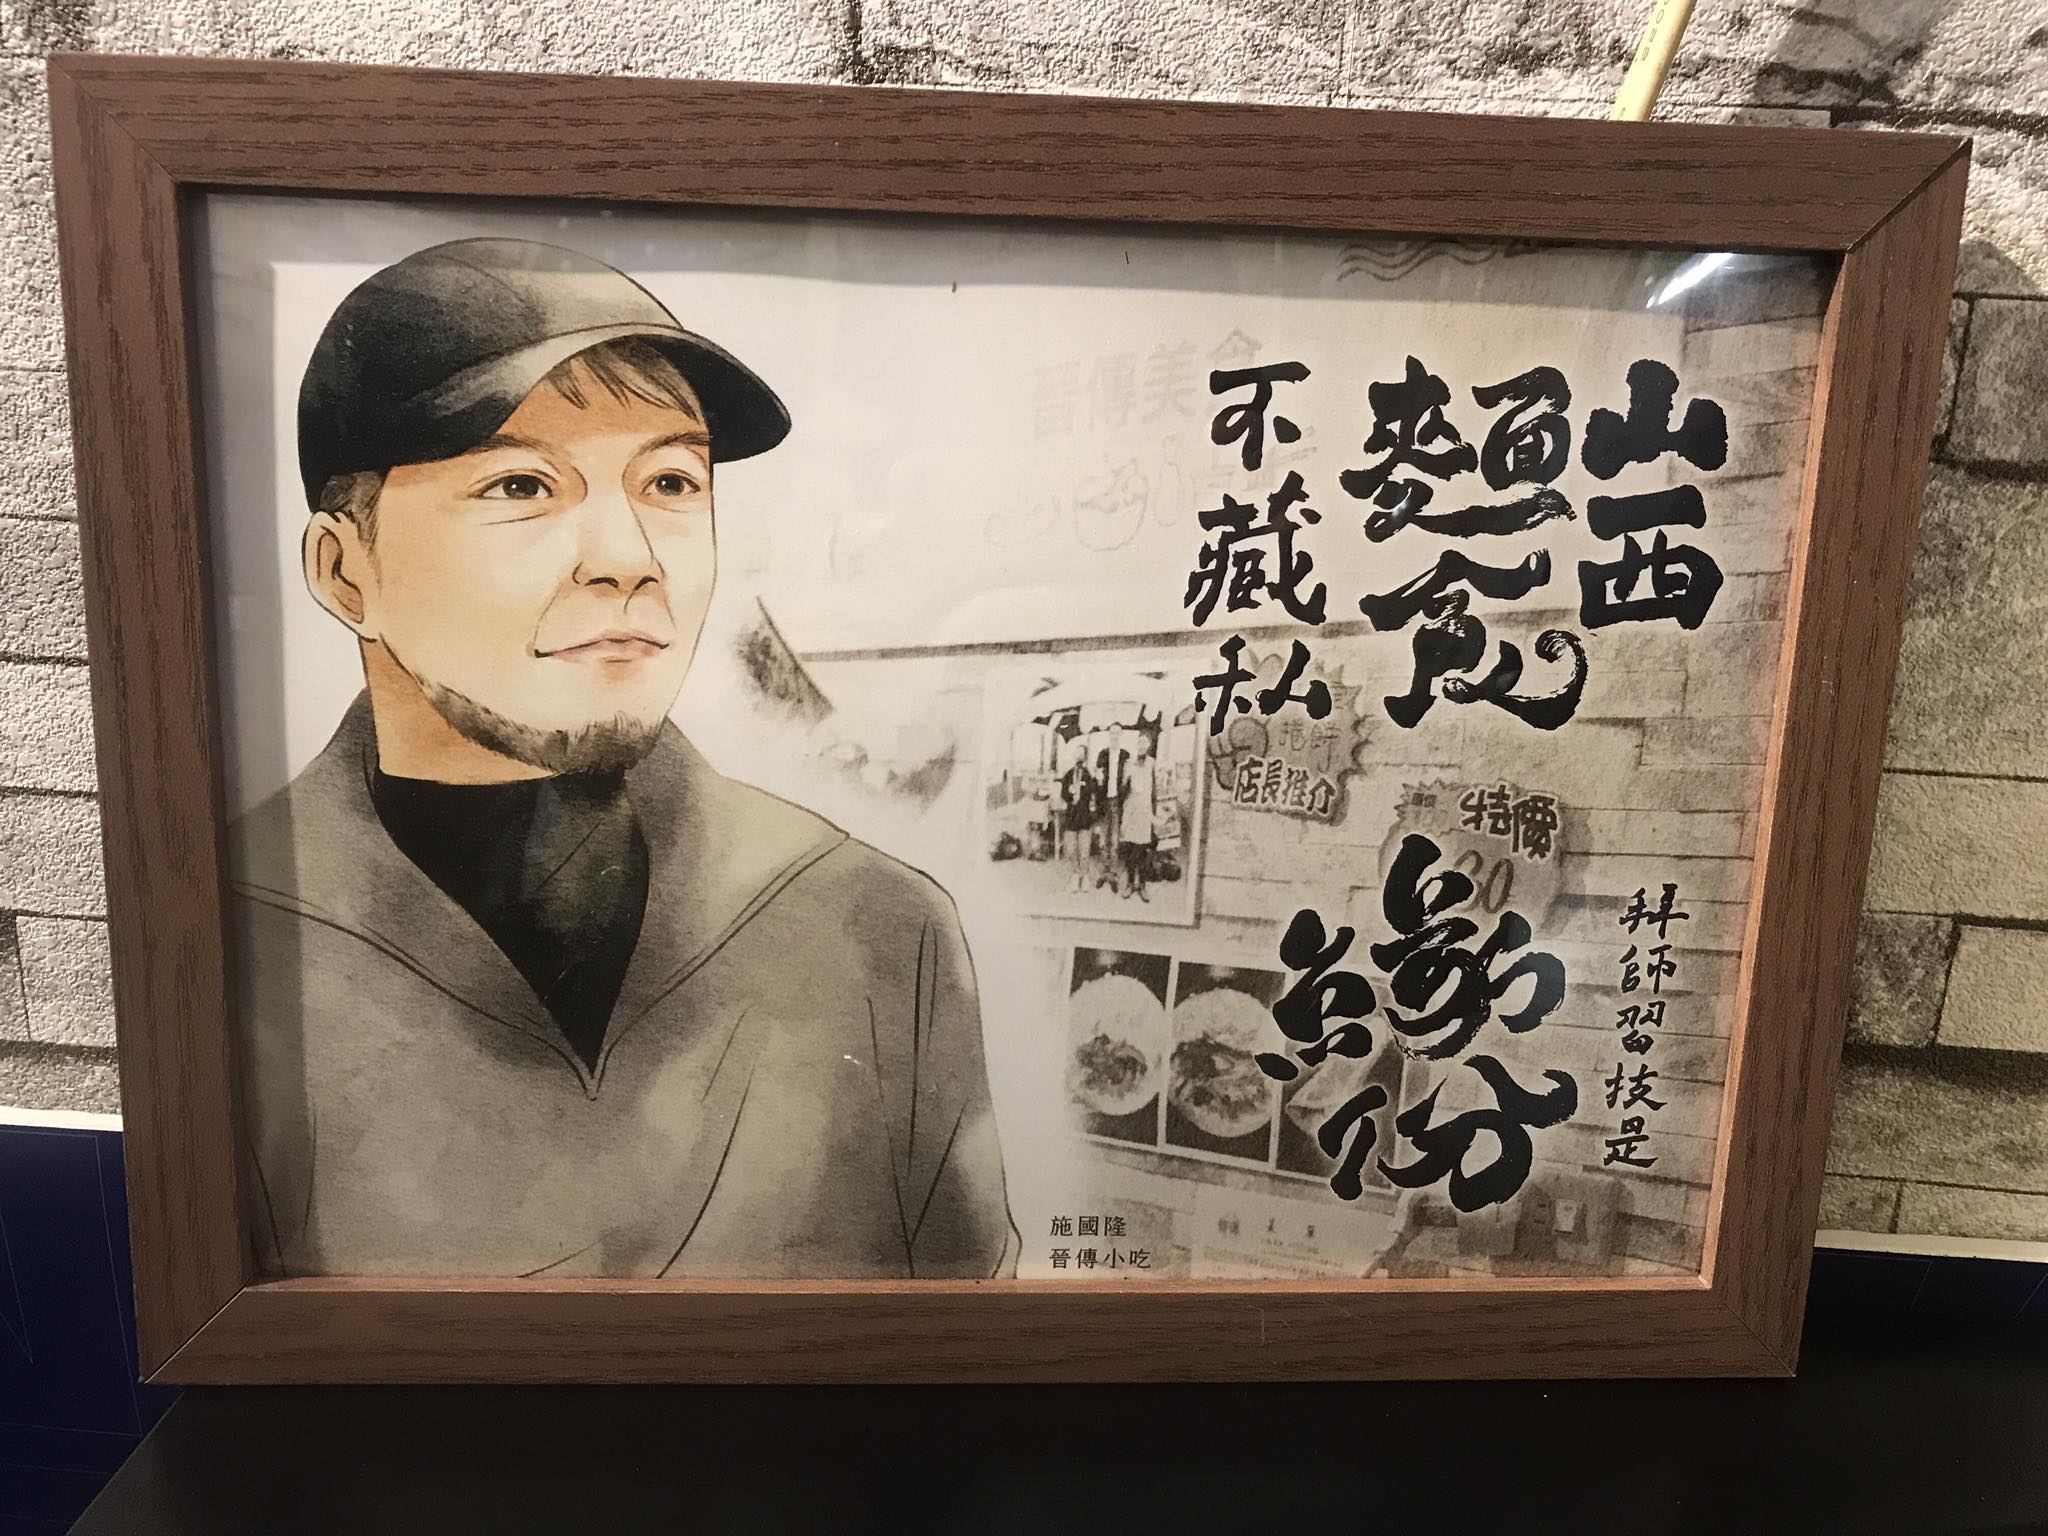 山西
麵食
不藏私
拜師習技是
緣份
晉傳美食
店長推介
特價
30
施國隆
晉傳小吃